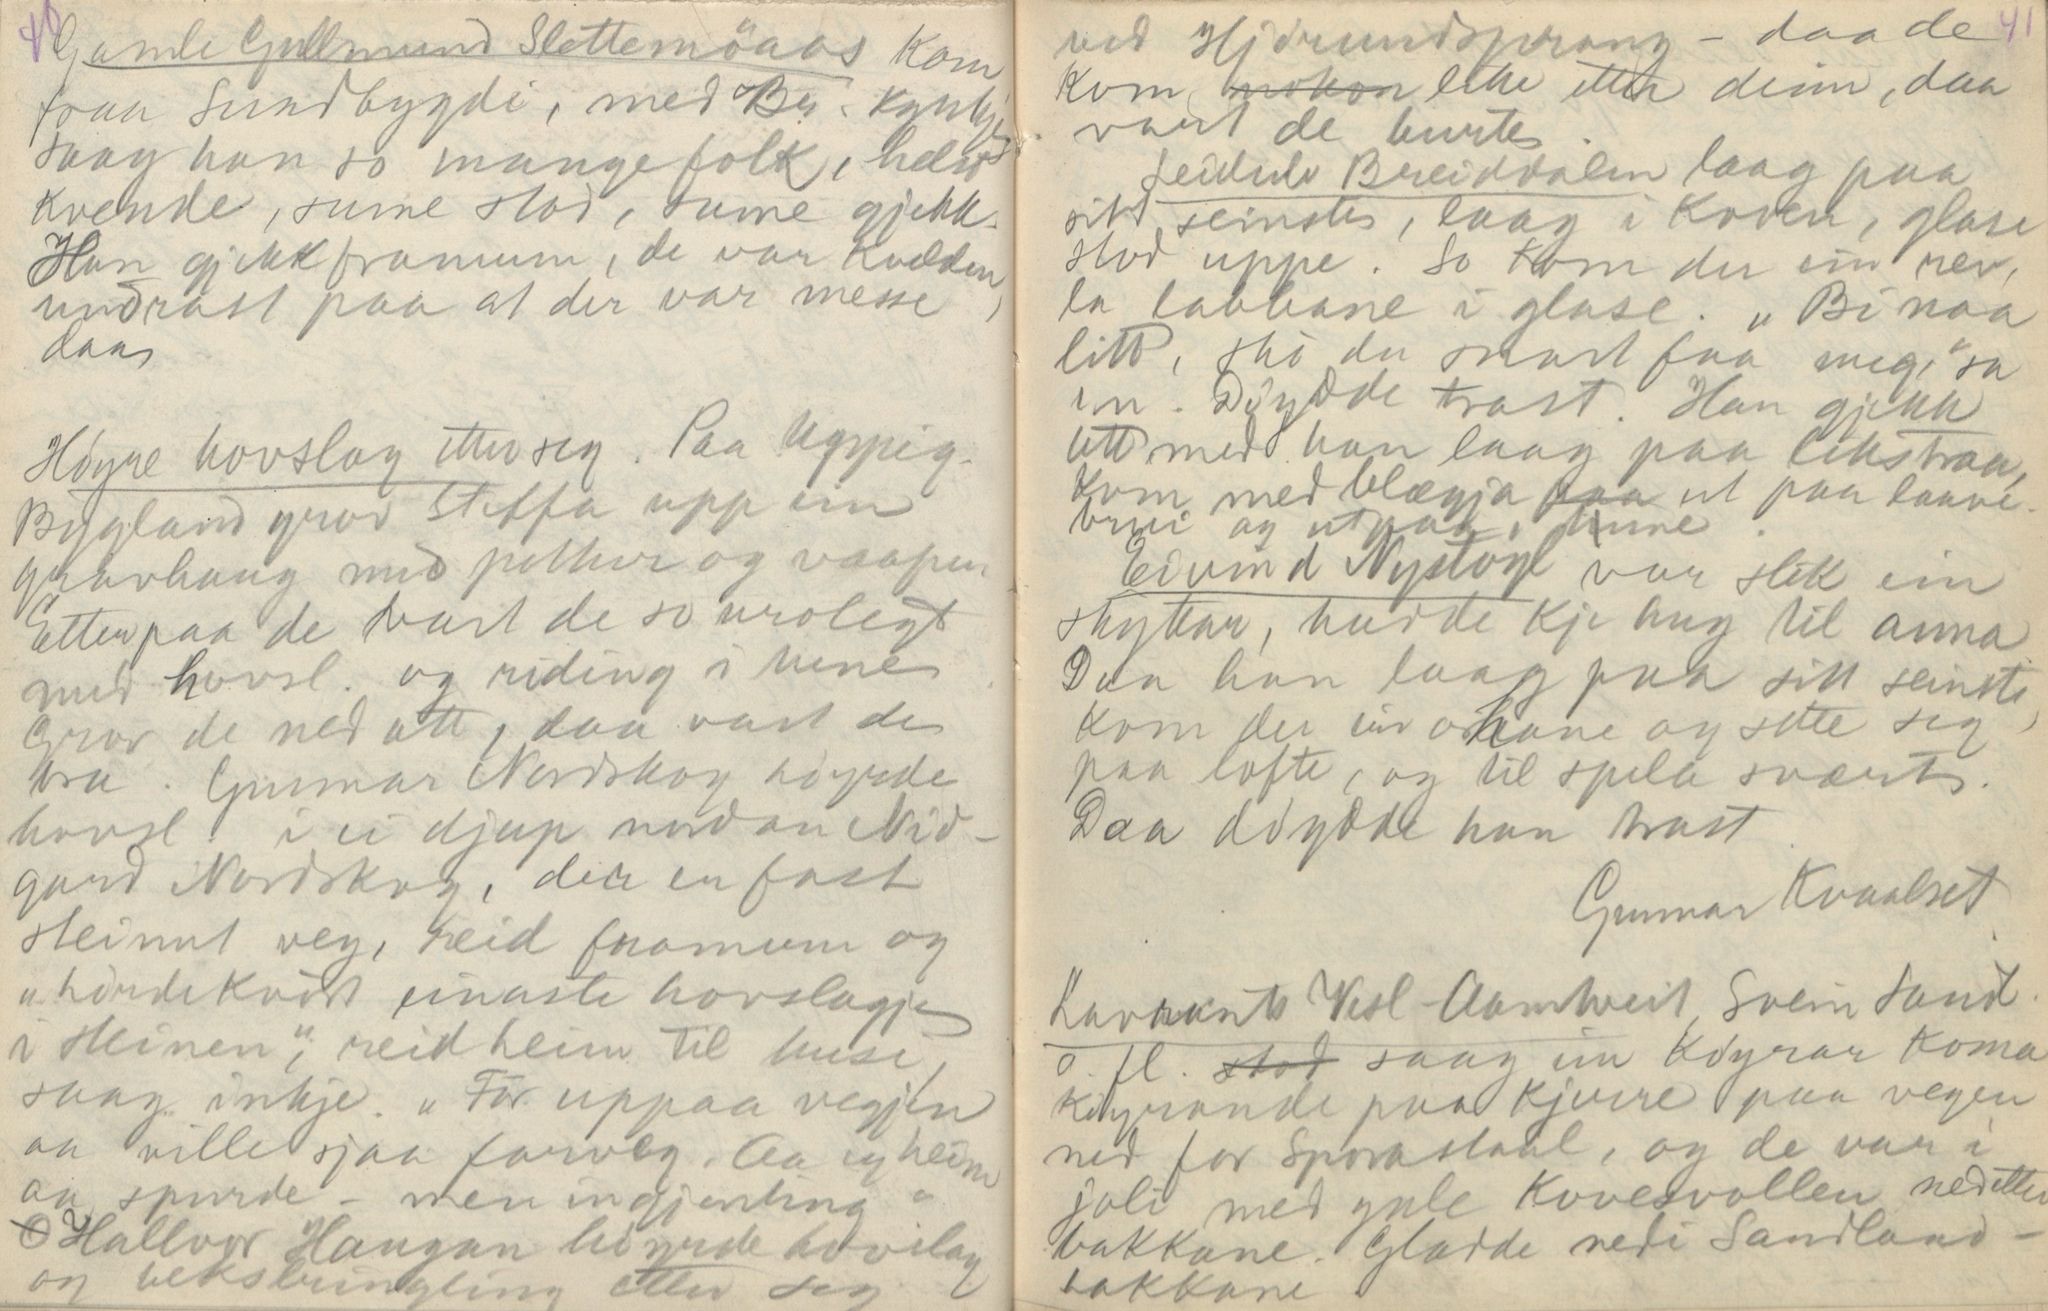 40
Gamle Gullmund Slettemöaas kom
fraa Sundbygdi, med Bø. Kyrkje
saag han so mange folk, helst
kvende, sume stod, sume gjekk.
Han gjekk framum, de var kvelden,
undrast paa at der var messe
daa,
Höyre hovslag etter seg. Paa Uppig-
Bygland grov Steffa upp ein
gravhaug med potter og vaapen.
Etterpaa de vart de so urolegt
med hovsl. og riding i huse
Grov de ned att, daa vart de
bra. Gunnar Nordskog höyrde
hovsl. i ei djup nordan Nid-
gard Nordskog, der er fast
steinut veg, reid framum og
"hörde kvört einaste hovslagje
i steinen", reid heim til huse,
saag inkje. "För uppaa vegjen
aa ville sjaa farveg. Aa eg heim
aa spurde - men ingjenting"
Hallvor Haugan höyrde hovslag
og bekslringling etter seg
41
ved Hjörundsprang - daa de
kom nokon like etter deim, daa
vart de burte.
Leidulv Breiddalen laag paa
sitt seinste, laag i koven, glase
stod uppe. So kom der ein rev,
la labbane i glase. "Bi naa
litt, ska du snart faa meg," sa
en. Döydde trast. Han gjekk
att med han laag paa likstraa,
kom med blægja paa ut paa laave-
brui og utpaa tune.
Eivind Nystögl var slik ein
skyttar, hadde kje hug til anna
Daa han laag paa sitt seinste,
kom der ein orhane og sette seg
paa lofte, og til spela svært.
Daa döydde han trast
Gunnar Kvaalset
Vesl-Aamtveit, Svein Sand.
o. fl. stod saag ein köyrar koma
köyrande paa kjerre paa vegen
ned for Sporastaul, og de var i
joli med gule Kovesvollen nedetter
bakkane. Gladde nedi Sandland-
bakkane